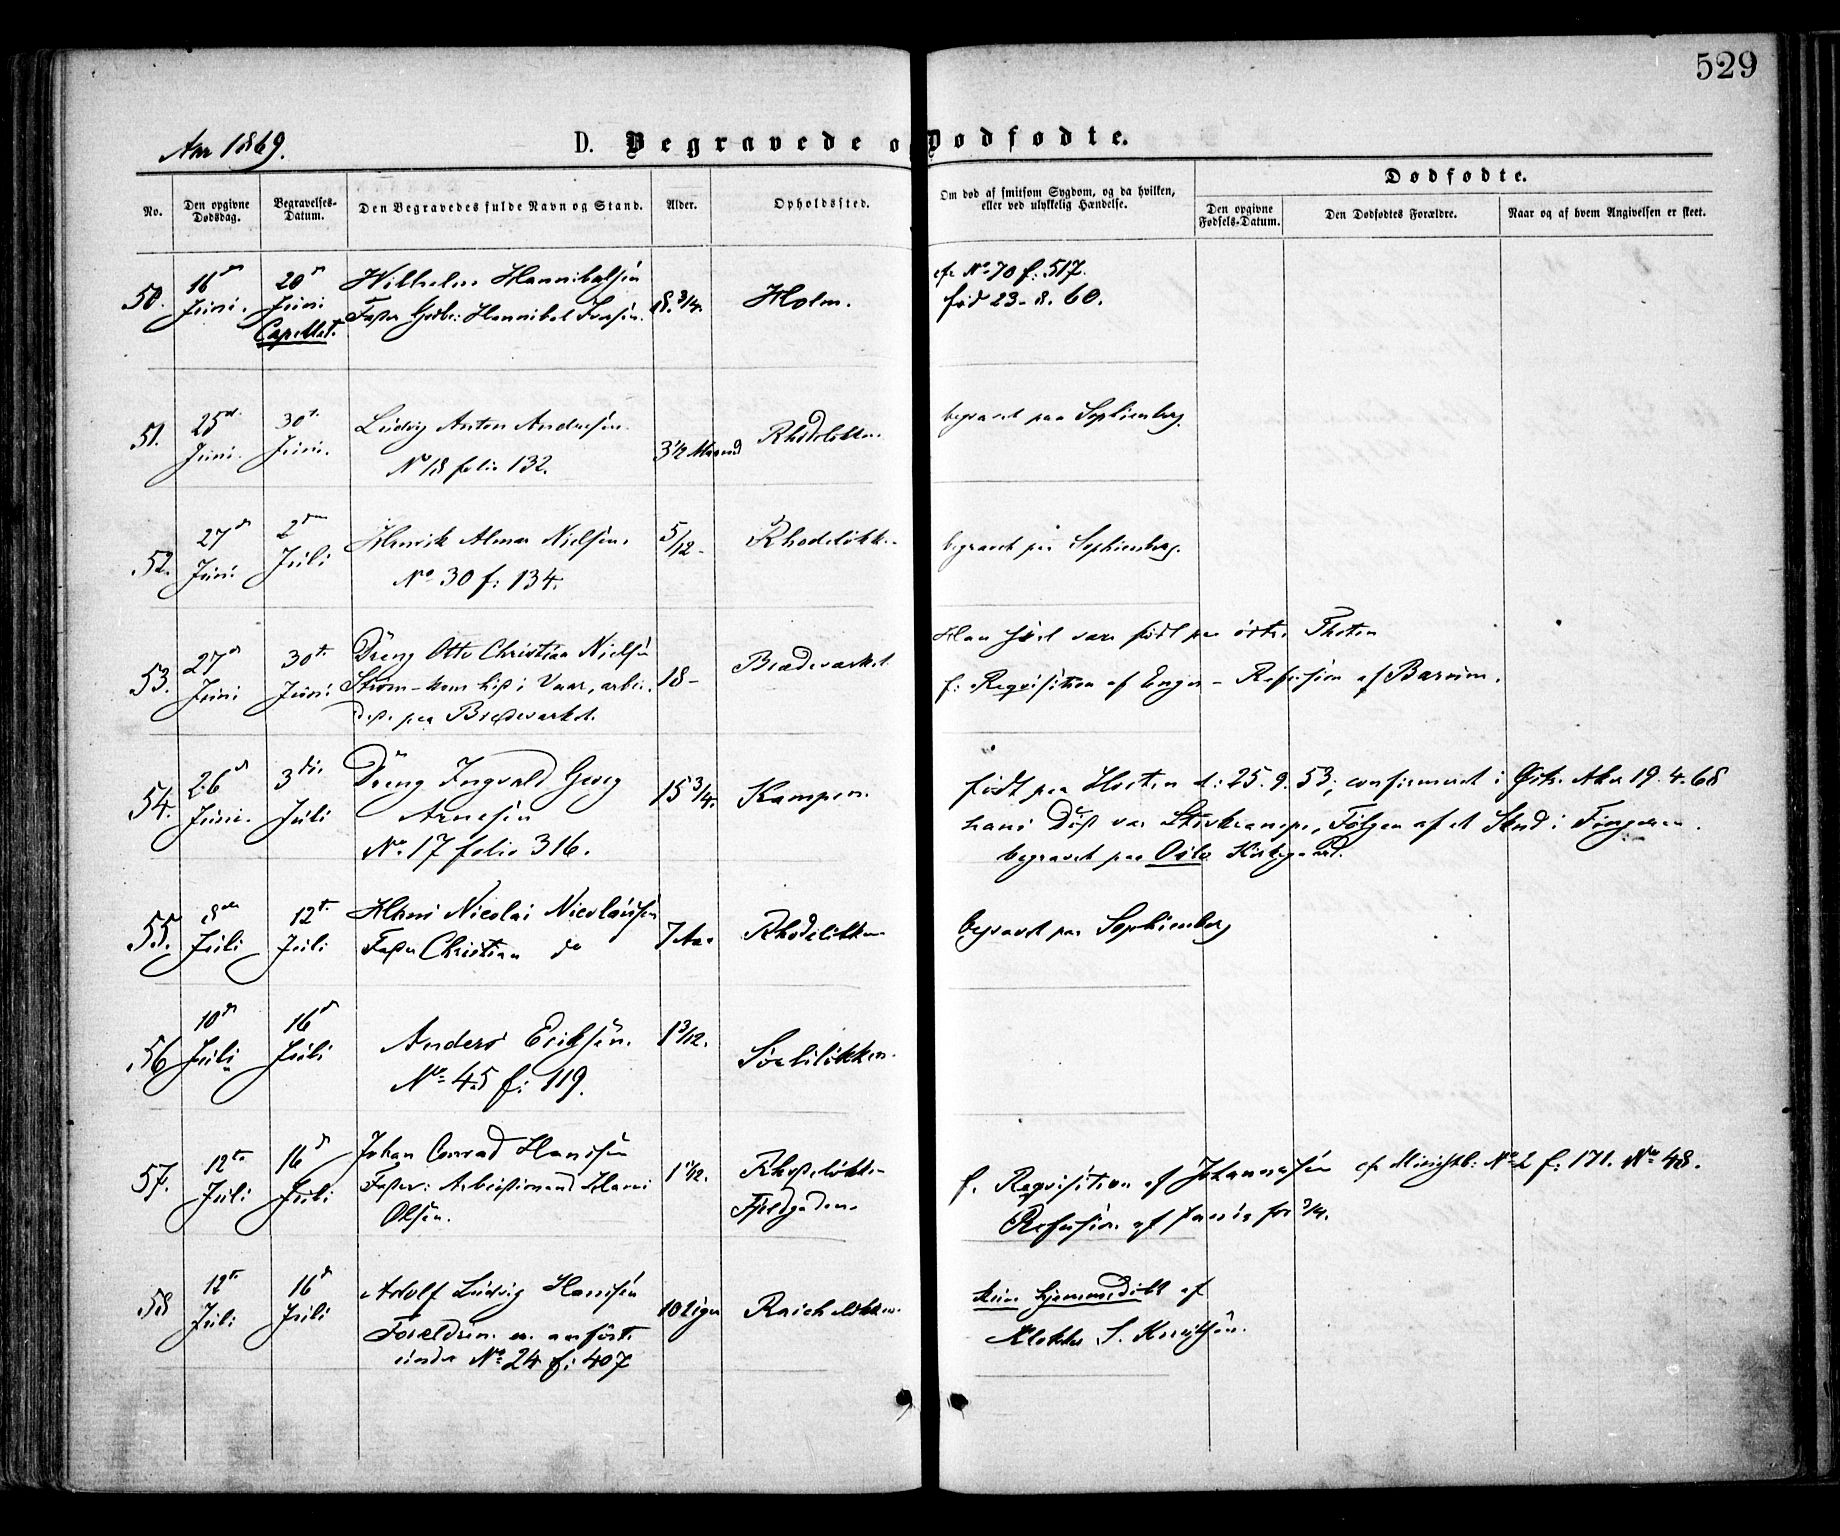 529
Aar 1869.
D. Begravede o Dødfødte.
No.
Den opgivne Dødsdag.
Begravelses-Datum.
Den Begravedes fulde Navn og Stand.
Alder.
Opholdsted.
Om død af smitsom Sygdom, og da hvilken,
eller ved ulykkelig Hændelse.
Dødfødte.
Den opgivne Fødsels-Datum.
Den Dødfødtes Forældre.
Naar og af hvem Angivelsen er skeet.
50. 16 Juni. 20 Juni Capellet. Wilhelm Hannibalsen 8 3/4. Holm. cfr No 70 f: 517.
Fader Hannibal født 23-8.60.
51. 25 Juni. 30 Juni. Ludvig Anton Andresen 3 1/2 Maaned Rhodeløkken begravet paa Sophienberg.
No 18 folio 132.
52. 27 Juni 2 Juli Henrik Almar Nielsen. 5/12 Rhodeløkk. begravet paa Sophienberg.
No 30 f: 134.
53. 27 Juni 30 Juni Dreng Otto Christian Nielsen 18 Brødeværket Han var født paa Thoten
Strøm - kom hid i Vaar, arbei-
f: Requisition af Enger - Refusion af Bærum.
dede paa Brødeværket.
54. 26 Juni. 3 Juli Dreng Ingvald Georg 15 3/4. Kampen. født paa Horten d: 25.9.53, confirmeret i Aker 19.4.68
Arnesen
hans Død var Stivkrampe, Følgen af et i Fingeren.
No. 17 folio 316.
begravet paa Oslo Kirkegaard.
55. 8 Juli 12 Juli Hans Nicolai Nicolaisen 7 Aar Rhodeløkken begravet paa Sophienberg
Fader Christian do
56 10 Juli 16 Juli Anders Eriksen. 1 3/12. Sorliløkken.
No 45 f: 119.
57. 12 Juli 16 Juli Johan Conrad Hansen Rhodeløkk- f. Requisition af Johannesen cfr Ministb: No 2 f: 171. No 48.
Fader: Arbeidsmand Hans Fjeldgaden.
Olsen. Refusion af
58 12 Juli 16 Juli Adolf Ludvig Hansen 10 Uger Raschløkken hjemmedøbt af
Forældrene er anført Klokker S. Knudsen.
under No 24 f: 407